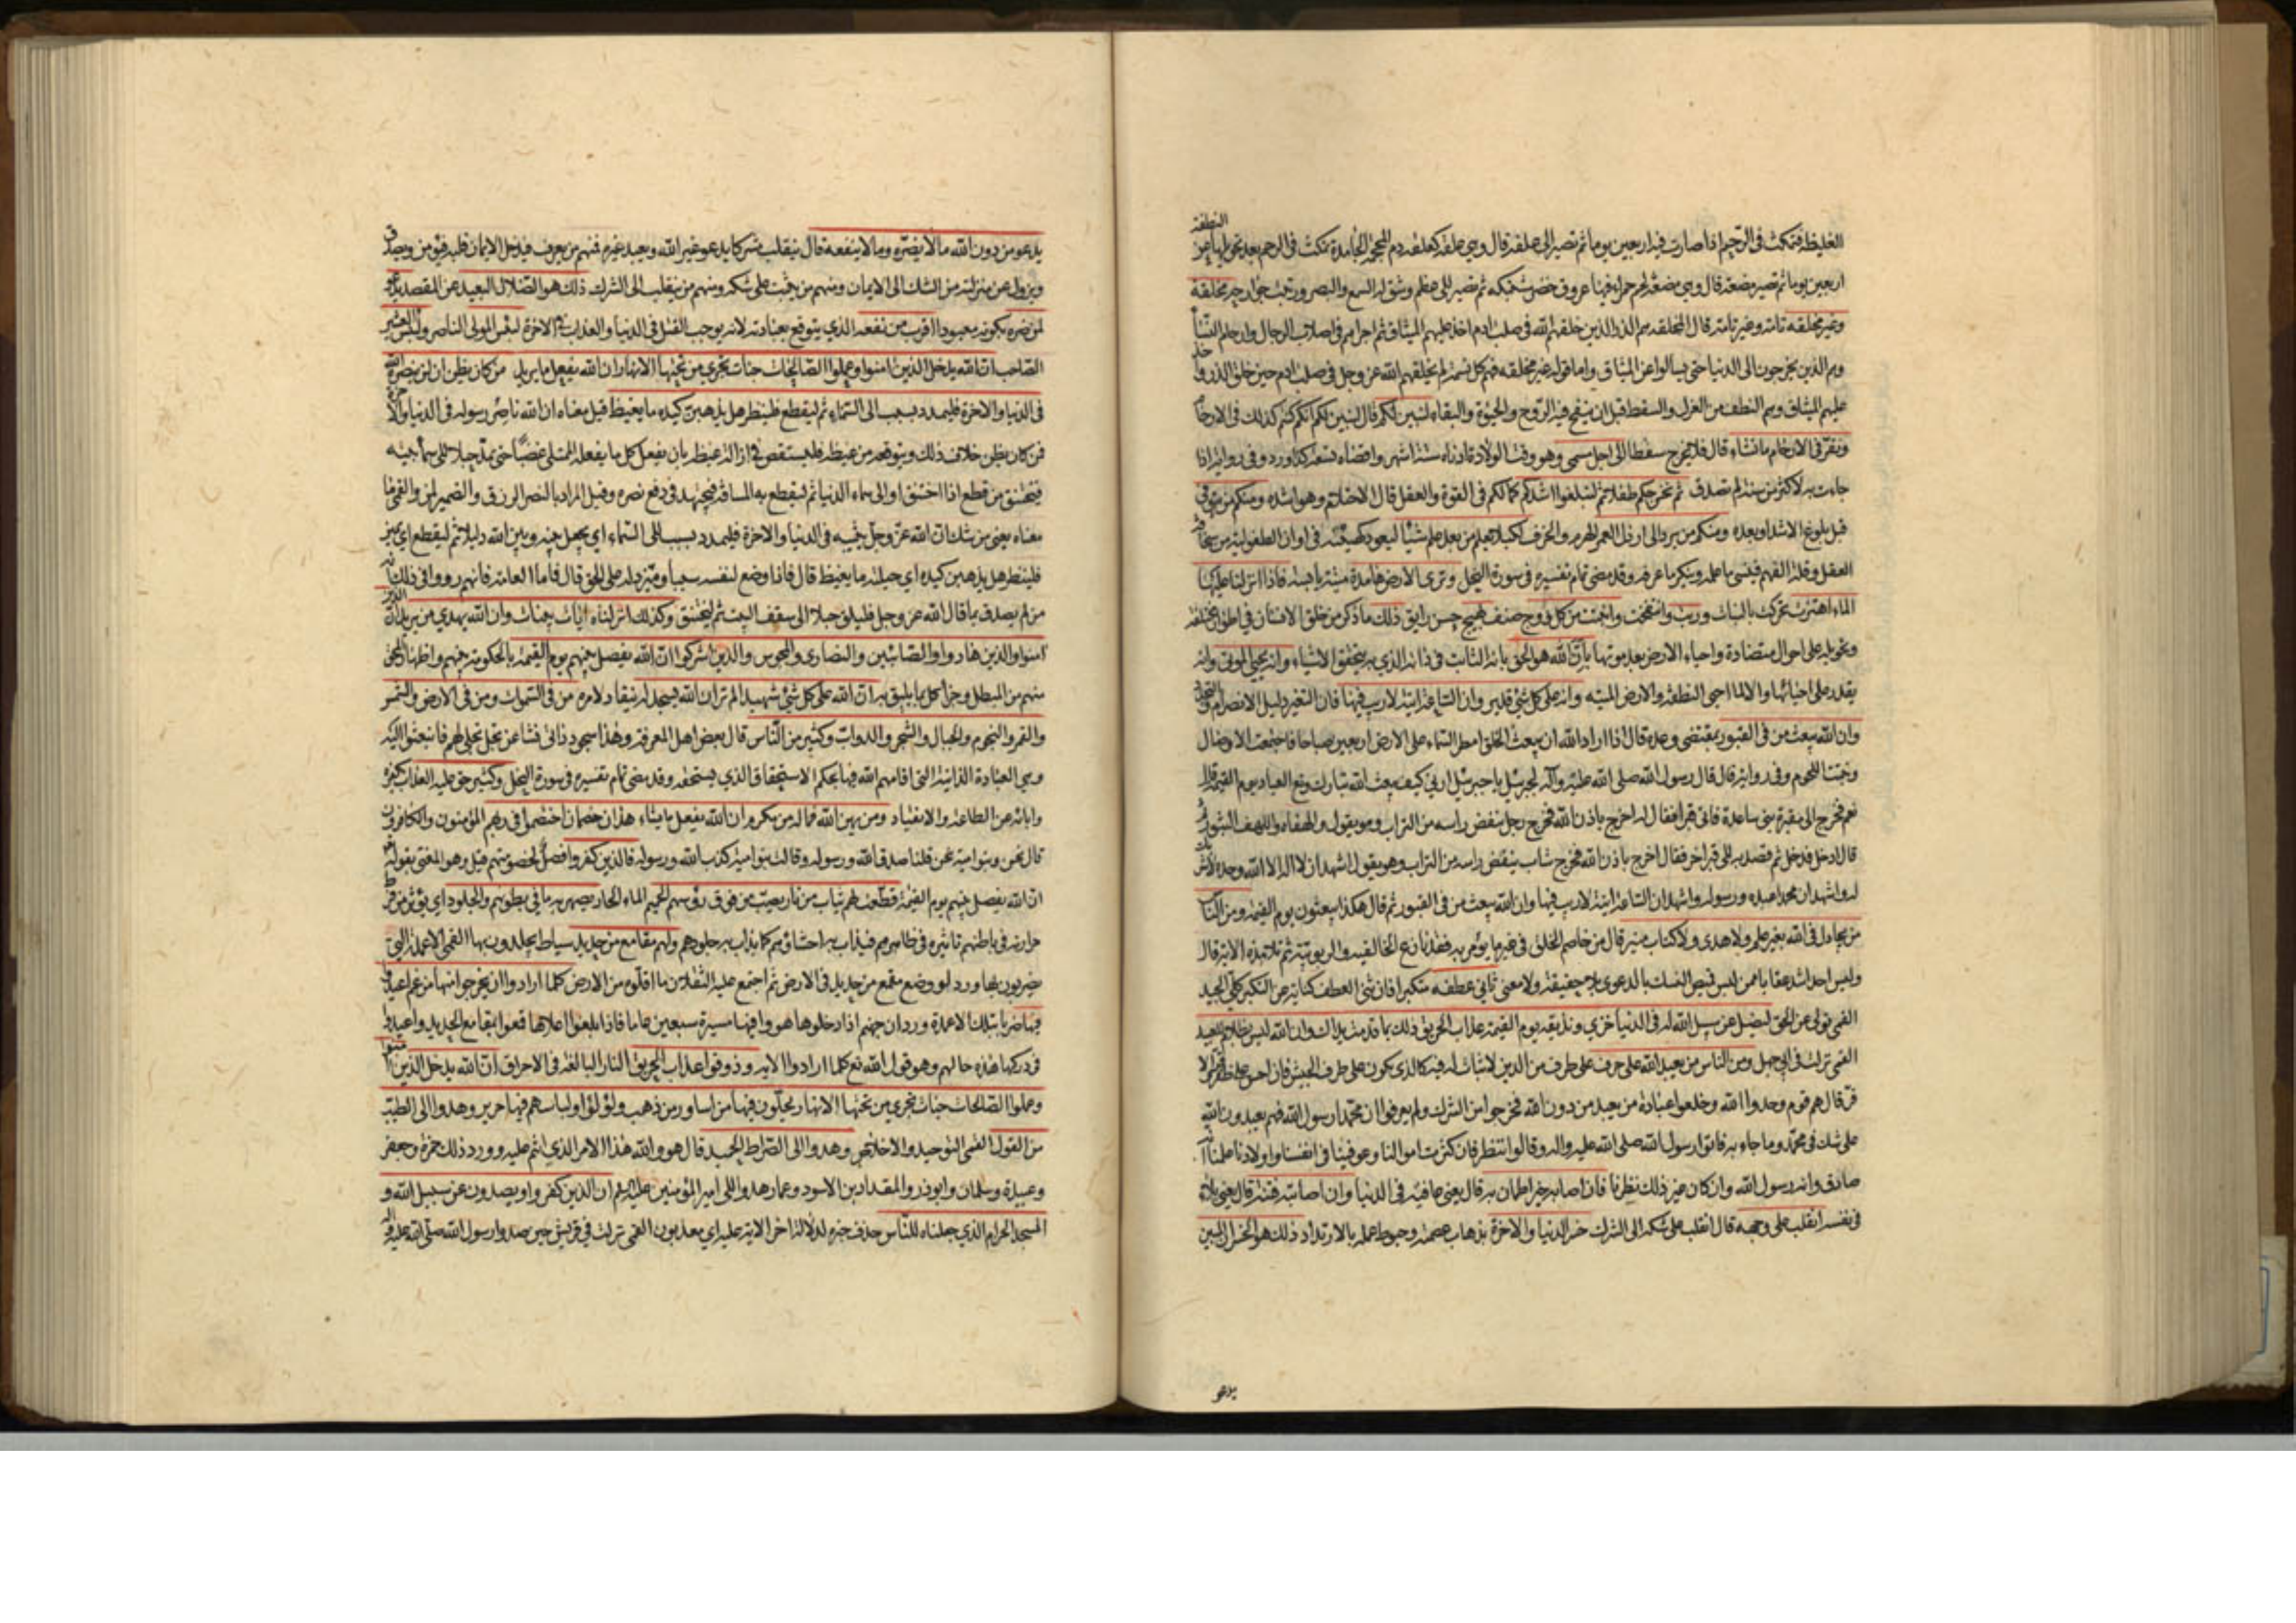 الغليظة فتمكث في الرحم اذا صارت فيه اربعين يوما ثم تصير الى علقة قال وهي علقة كعلقة دم المحجمة الجامدة تمكث في الرحم بعد تحويلها عن النطفة
اربعين يوما ثم تصير مضغة قال وهي مضغة لحم حمراء فيها عروق خضر مشتبكة ثم تصير الى عظم وشق له السمع والبصر ورتبت جوارحه مخلقة
وغير مخلقة تامة وغير تامة قال المخلقة هم الذر الذين خلقهم الله في صلب ادم اخذ عليهم الميثاق ثم اجراهم في اصلاب الرجال وارحام النساء
وهم الذين يخرجون الى الدنيا حتى يسألوا عن الميثاق واما قوله غير مخلقة فهم كل نسمة لم يخلقهم الله عز وجل في صلب ادم حين خلق الذر واخذ
عليهم الميثاق وهم النطف من العزل والسقط قبل ان ينفخ فيه الروح والحيوة والبقاء لنبين لكم قال لنبين لكم انكم كنتم كذلك في الارحام
ونقر في الارحام ما نشاء قال فلا يخرج سقطا الى اجل مسمى وهو وقت الولادة ادناه ستة اشهر واقصاه تسعة كذا ورد وفي رواية اذا
جاءت به لاكثر من سنة لم تصدق ثم نخرجكم طفلا ثم لتبلغوا اشدكم كمالكم في القوة والعقل قال الاحتلام وهو اشده ومنكم من يتوفى
قبل بلوغ الاشد او بعده ومنكم من يرد الى ارذل العمر الهرم والخرف لكيلا يعلم من بعد علم شيئا ليعود كهيئته في اوان الطفولية من سخافة
العقل وقلة الفهم فينسى ما علمه وينكر ما عرفه وقد مضى تمام تفسيره في سورة النحل وترى الارض هامدة ميتة يابسة فاذا انزلنا عليها
الماء اهتزت تحركت بالنبات وربت وانتفخت وانبتت من كل زوج صنف بهيج حسن رايق ذلك ما ذكر من خلق الانسان في اطوار مختلفة
وتحويله على احوال متضادة واحياء الارض بعد موتها بان الله هو الحق بانه الثابت في ذاته الذي به يتحقق الاشياء وانه يحيي الموتى وانه
يقدر على احيائها والا لما احيى النطفة والارض الميتة وانه على كل شئ قدير وان الساعة اتية لا ريب فيها فان التغير دليل الانصرام والتحول
وان الله يبعث من في القبور بمقتضى وعده قال اذا اراد الله ان يبعث الخلق امطر السماء على الارض اربعين صباحا فاجتمعت الاوصال
ونبتت اللحوم وفي رواية قال قال رسول الله صلى الله عليه وآله لجبرئيل يا جبرئيل ارني كيف يبعث الله تبارك وتع العباد يوم القيمة قال
نعم فخرج الى مقبرة بني ساعدة فاتى قبرا فقال له اخرج باذن الله فخرج رجل ينفض راسه من التراب وهو يقول والهفاه واللهف الثبور ثم
قال ادخل فدخل ثم قصد به الى قبر اخر فقال اخرج باذن الله فخرج شاب ينفض راسه من التراب وهو يقول اشهد ان لا اله الا الله وحده لا شريك
له واشهد ان محمدا عبده ورسوله واشهد ان الساعة اتية لا ريب فيها وان الله يبعث من في القبور ثم قال هكذا يبعثون يوم القيمة ومن الناس
من يجادل في الله بغير علم ولا هدى ولا كتاب منير قال من خاصم الخلق في غير ما يؤمر به فقد نازع الخالقية والربوبية ثم تلا هذه الاية قال
وليس احد اشد عقابا ممن لبس قميص النسك بالدعوى بلا حقيقة ولا معنى ثاني عطفه متكبرا فان ثني العطف كناية عن التكبر كلي الجيد
القمي تولى عن الحق ليضل عن سبيل الله له في الدنيا خزي ونذيقه يوم القيمة عذاب الحريق ذلك بما قدمت يداك وان الله ليس بظلام للعبيد
القمي نزلت في ابي جهل ومن الناس من يعبد الله على حرف على طرف من الدين لا ثبات له فيه كالذي يكون على طرف الجيش فان احس بظفر قر والا
فر قال هم قوم وحدوا الله وخلعوا عبادة من يعبد من دون الله فخرجوا من الشرك ولم يعرفوا ان محمدا رسول الله فهم يعبدون الله
على شك في محمد وما جاء به فاتوا رسول الله صلى الله عليه واله وقالوا ننتظر فان كثرت اموالنا وعوفينا في انفسنا واولادنا علمنا انه
صادق وانه رسول الله وان كان غير ذلك نظرنا فان اصابه خير اطمان به قال يعني عافية في الدنيا وان اصابته فتنة قال يعني بلاء
في نفسه انقلب على وجهه قال انقلب على شكه الى الشرك خسر الدنيا والاخرة بذهاب عصمته وحبوط عمله بالارتداد ذلك هو الخسران المبين
يدعو
يدعو من دون الله ما لا يضره وما لا ينفعه قال ينقلب مشركا يدعو غير الله ويعبد غيره فمنهم من يعرف فيدخل الايمان قلبه فيؤمن ويصدق
ويزول عن منزلته من الشك الى الايمان ومنهم من يثبت على شكه ومنهم من ينقلب الى الشرك ذلك هو الضلال البعيد عن المقصد يدعو
لمن ضره بكونه معبودا اقرب من نفعه الذي يتوقع بعبادته لانه يوجب القتل في الدنيا والعذاب في الاخرة لبئس المولى الناصر ولبئس العشير
الصاحب ان الله يدخل الذين امنوا وعملوا الصالحات جنات تجري من تحتها الانهار ان الله يفعل ما يريد من كان يظن ان لن ينصره الله
في الدنيا والاخرة فليمدد بسبب الى السماء ثم ليقطع فلينظر هل يذهبن كيده ما يغيظ قيل معناه ان الله ناصر رسوله في الدنيا والاخرة
فمن كان يظن خلاف ذلك ويتوقعه من غيظه فليستقص في ازالة غيظه بان يفعل كل ما يفعله الممتلي غضبا حتى يمد حبلا الى سماء بيته
فيختنق من قطع اذا اختنق او الى سماء الدنيا ثم ليقطع به المسافة فيجتهد في دفع نصره وقيل المراد بالنصر الرزق والضمير لمن والقمي ما
معناه يعني من شك ان الله عز وجل يثيبه في الدنيا والاخرة فليمدد بسبب الى السماء اي يجعل بينه وبين الله دليلا ثم ليقطع اي يميز
فلينظر هل يذهبن كيده اي حيلته ما يغيظ قال فاذا وضع لنفسه سببا وميز دله على الحق قال فاما العامة فانهم رووا في ذلك انه
من لم يصدق بما قال الله عز وجل فليلق حبلا الى سقف البيت ثم ليختنق وكذلك انزلناه ايات بينات وان الله يهدي من يريد ان الذين
امنوا والذين هادوا والصابئين والنصارى والمجوس والذين اشركوا ان الله يفصل بينهم يوم القيمة بالحكومة بينهم واظهار المحق
منهم من المبطل وجزأ كل ما يليق به ان الله على كل شئ شهيد الم تر ان الله يسجد له ينقاد لامره من في السموات ومن في الارض والشمس
والقمر والنجوم والجبال والشجر والدواب وكثير من الناس قال بعض اهل المعرفة وهذا سجود ذاتي نشا عن تجل تجلى لهم فانبعثوا اليه
وهي العبادة الذاتية التي اقامهم الله فيها بحكم الاستحقاق الذي يستحقه وقد مضى تمام تفسيره في سورة النحل وكثير حق عليه العذاب بكفره
وابائه عن الطاعة والانقياد ومن يهن الله فما له من مكرم ان الله يفعل ما يشاء هذان خصمان اختصموا في ربهم المؤمنون والكافرون
قال نحن وبنو امية نحن قلنا صدق الله ورسوله وقالت بنو امية كذب الله ورسوله فالذين كفروا فصل لخصومتهم قيل وهو المعنى بقوله
ان الله يفصل بينهم يوم القيمة قطعت لهم ثياب من نار يصب من فوق رؤسهم الحميم الماء الحار يصهر به ما في بطونهم والجلود اي يؤثر من فرط
حرارته في باطنهم تاثيره في ظاهرهم فيذاب به احشاؤهم كما يذاب به جلودهم ولهم مقامع من حديد سياط يجلدون بها القمي الاعمدة التي
يضربون بها ورد لو وضع مقمع من حديد في الارض ثم اجتمع عليه الثقلان ما اقلوه من الارض كلما ارادوا ان يخرجوا منها من غم اعيدوا
فيها ضربا بتلك الاعمدة ورد ان جهنم اذا دخلوها هووا فيها مسيرة سبعين عاما فاذا بلغوا اعلاها قمعوا بمقامع الحديد واعيدوا
في دركها هذه حالهم وهو قول الله تع كلما ارادوا الاية وذوقوا عذاب الحريق النار البالغة في الاحراق ان الله يدخل الذين امنوا
وعملوا الصالحات جنات تجري من تحتها الانهار يحلون فيها من اساور من ذهب ولؤلؤا ولباسهم فيها حرير وهدوا الى الطيب
من القول القمي التوحيد والاخلاص وهدوا الى الصراط الحميد قال هو والله هذا الامر الذي انتم عليه وورد ذلك حمزة وجعفر
وعبيدة وسلمان وابوذر والمقداد بن الاسود وعمار هدوا الى امير المؤمنين عليه السلم ان الذين كفروا ويصدون عن سبيل الله و
المسجد الحرام الذي جعلناه للناس حذف خبره لدلالة اخر الاية عليه اي معذبون القمي نزلت في قريش حين صدوا رسول الله صلى الله عليه واله